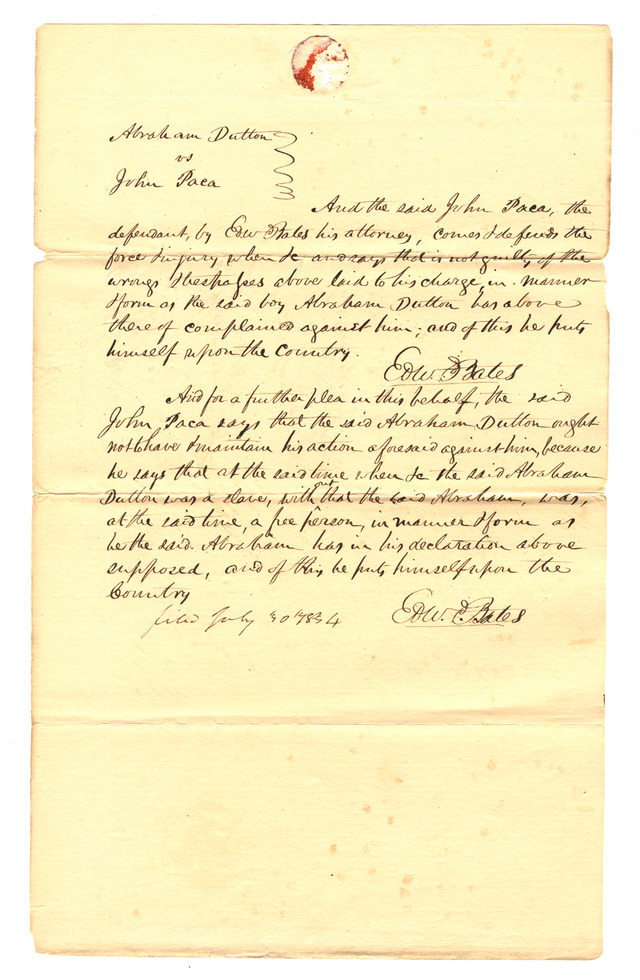 Abraham Dutton
vs
John Paca
And the said John Paca, the
defendant, by Edw Bates his attorney, comes & defends the
force & injury when &c and says that is not guilty of the
wrongs & trespasses above laid to his charge, in manner
& form as the said boy Abraham Dutton has above
there of complained against him; and of this he puts
himself upon the country.
Edw. Bates
And for a further plea in this behalf, the said
John Paca says that the said Abraham Dutton ought
not to have & maintain his action aforesaid against him, because
he says that at the said time when &c the said Abraham
Dutton was a slave, without that the said Abraham, was,
at the said time, a free person, in manner & form as
he the said Abraham has in his declaration above
supposed, and of this he puts himself upon the
Country
filed July 30 1834 Edw. Bates